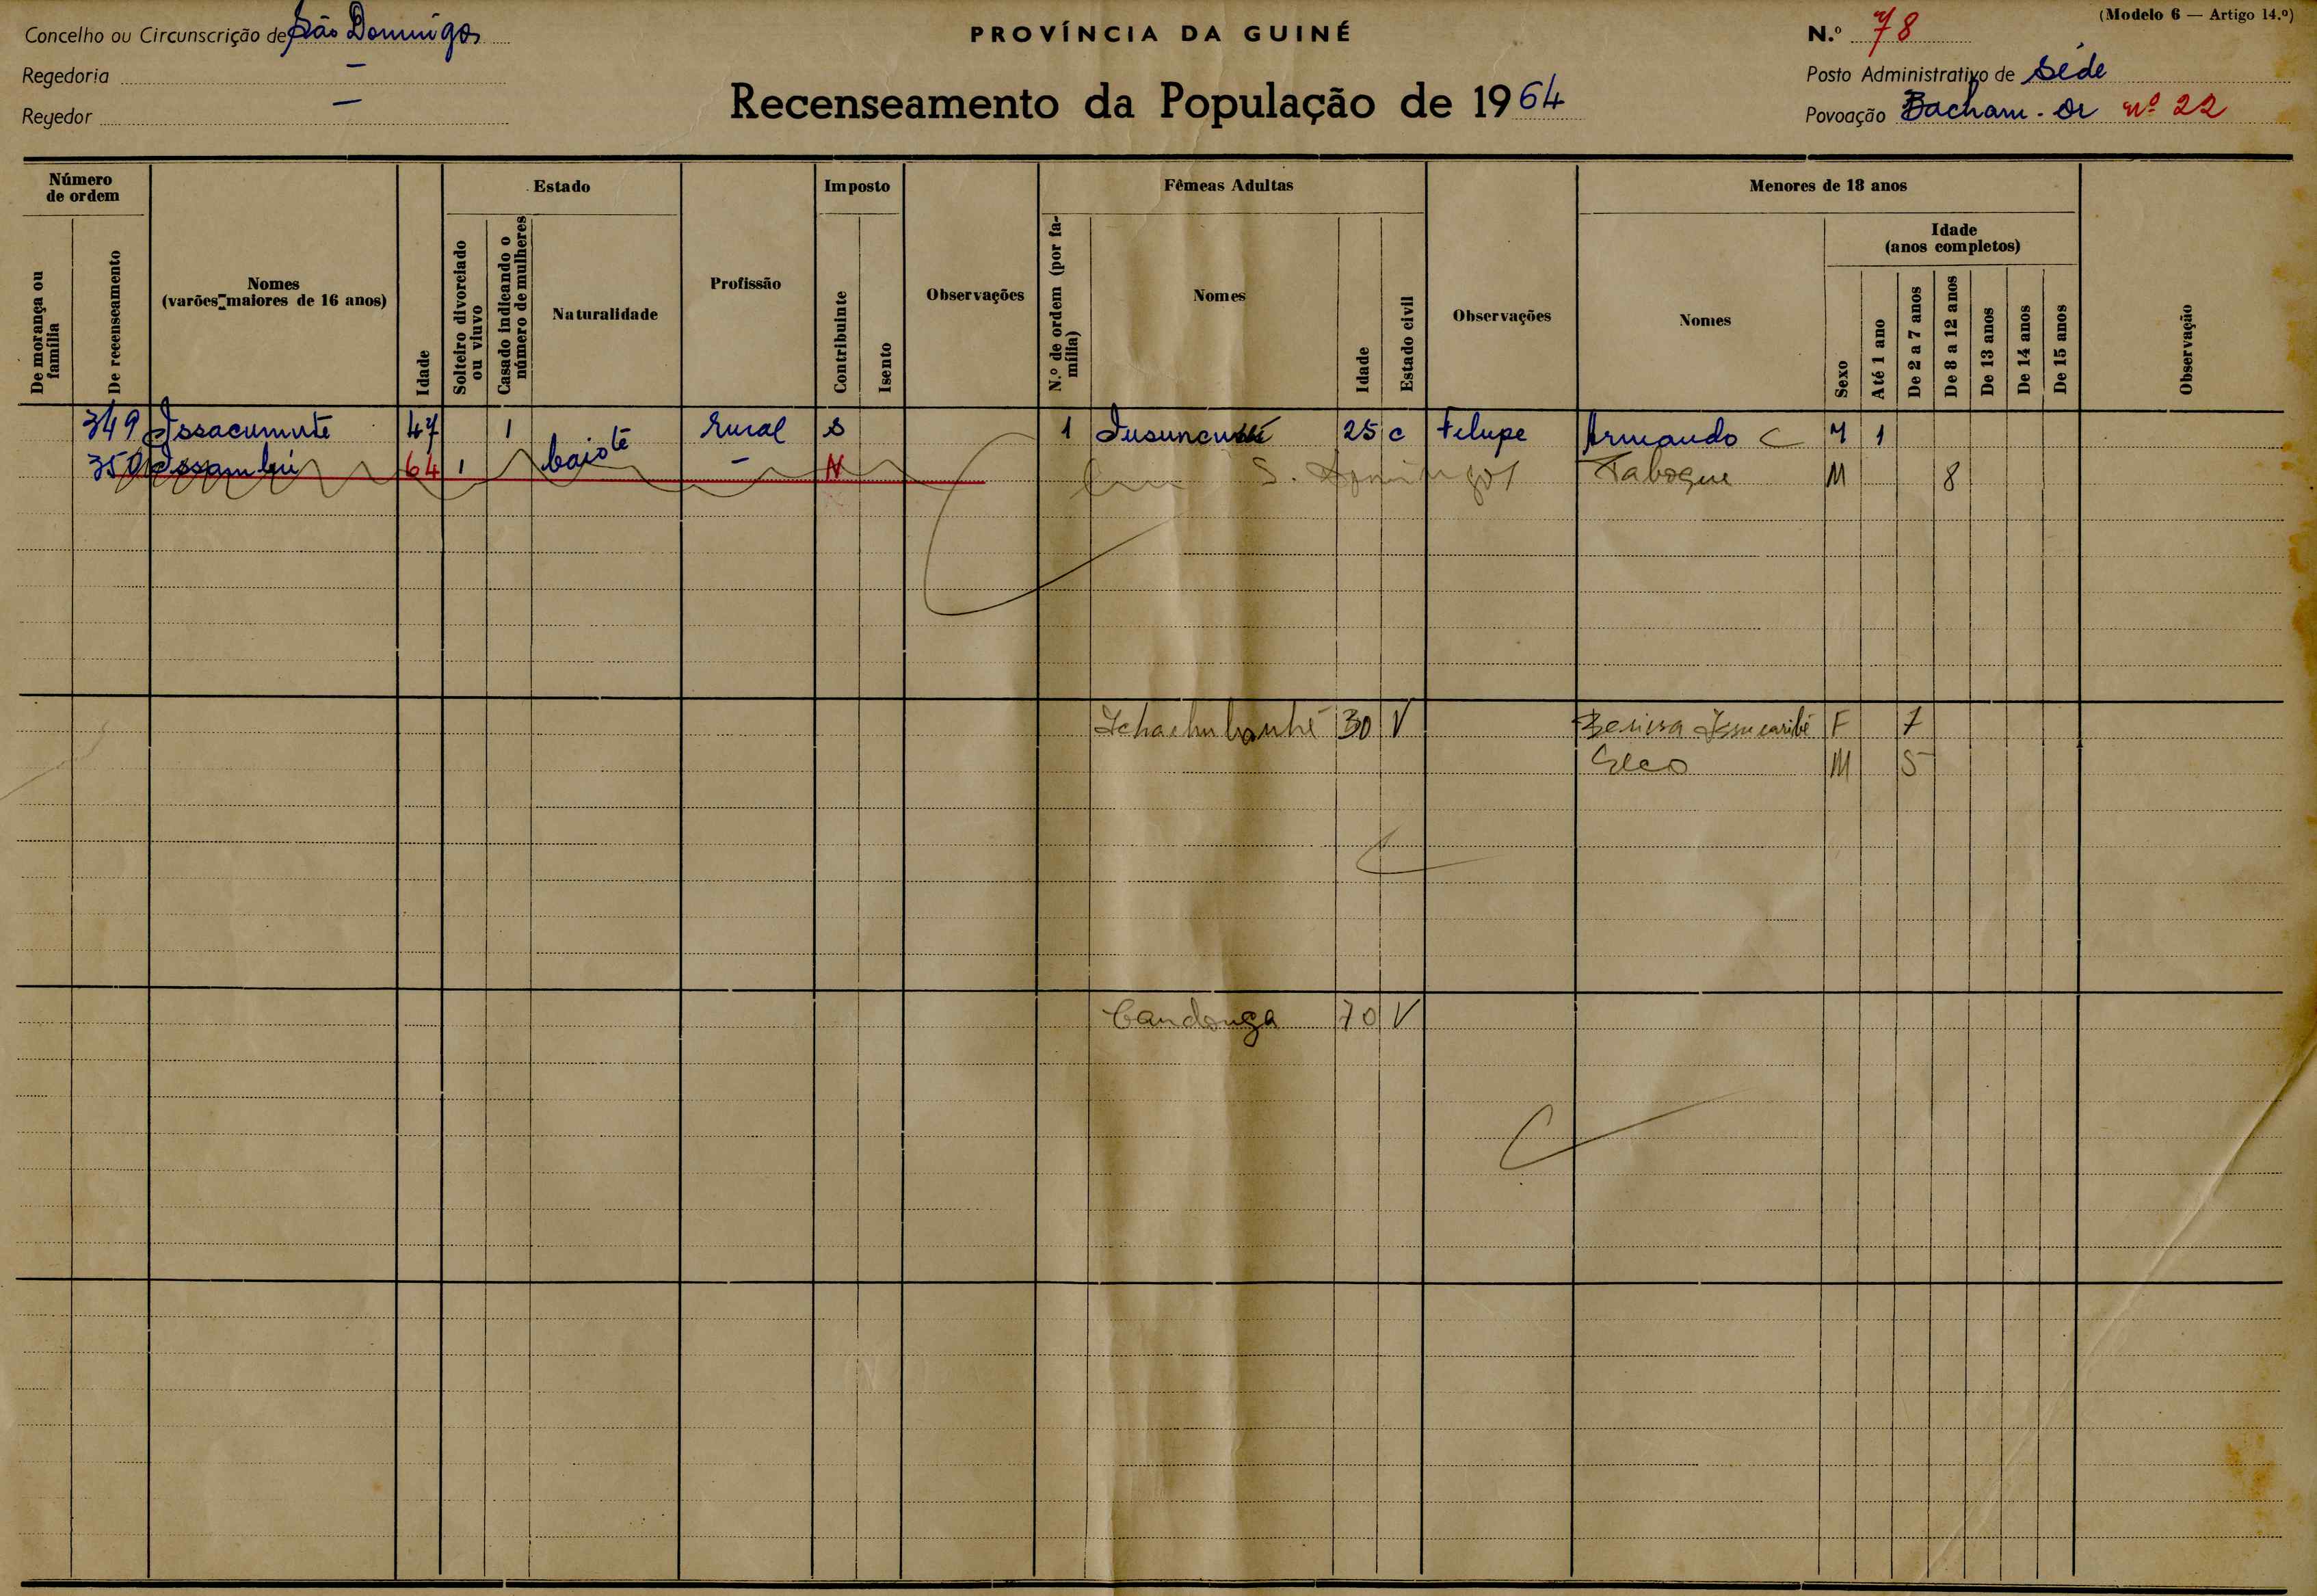 Concelho ou Circunscrição de São Domingos
Regedoria —
Regedor —
PROVÍNCIA DA GUINÉ
Recenseamento da População de 1964
(Modelo 6 — Artigo 14.º)
N.º 78
Posto Administrativo de Séde
Povoação Bacham - or nº 22
Número de ordem
De morança ou família
De recenseamento
Nomes
(varões maiores de 16 anos)
Idade
Estado
Solteiro divorciado ou viuvo
Casado indicando o número de mulheres
Naturalidade
Profissão
Imposto
Contribuinte
Isento
Observações
Fêmeas Adultas
N.º de ordem (por família)
Nomes
Idade
Estado civil
Observações
Menores de 18 anos
Nomes
Sexo
Idade
(anos completos)
Até 1 ano
De 2 a 7 anos
De 8 a 12 anos
De 13 anos
De 14 anos
De 15 anos
Observação
349 Issacumute 47 1 Rural S 1 25 c Felupe Armando C M 1
350 Issambui 64 1 baiote — N em S. Domingos Taboque M 8
30 V F 7
Eleo M 5
Candonga 70 V